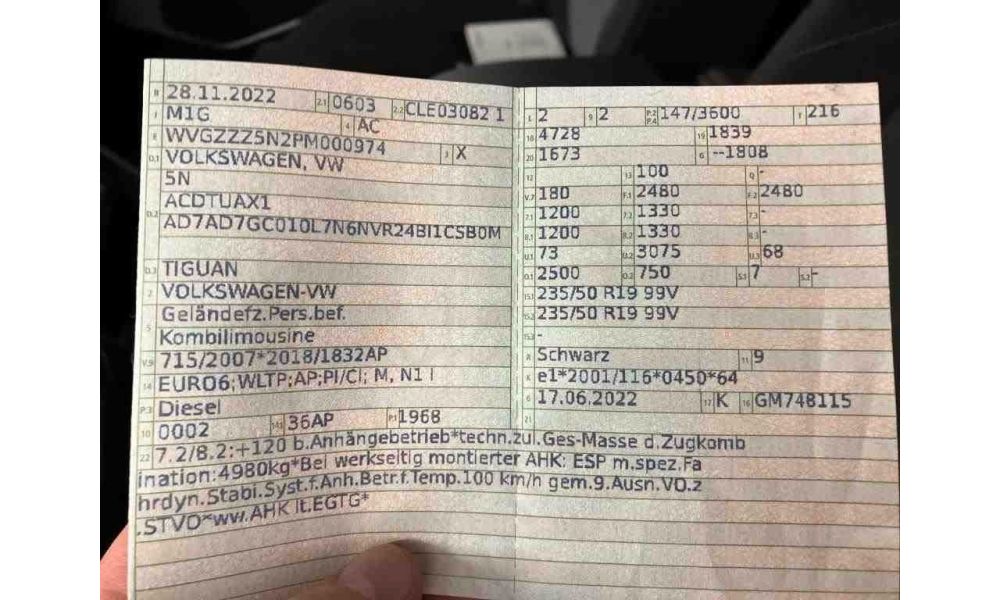 B 28.11.2022 2.1 0603 2.2 CLE03082 1
J M1G 4 AC
E WVGZZZ5N2PM000974 3 X
D.1 VOLKSWAGEN, VW
5N
D.2 ACDTUAX1
AD7AD7GC010L7N6NVR24BI1CSB0M
D.3 TIGUAN
2 VOLKSWAGEN-VW
5 Geländefz.Pers.bef.
Kombilimousine
V.9 715/2007*2018/1832AP
14 EURO6;WLTP;AP;PI/CI; M, N1 I
P.3 Diesel
10 0002 14.1 36AP P.1 1968
L 2 9 2 P.2 P.4 147/3600 T 216
18 4728 19 1839
20 1673 G --1808
12 13 100 Q -
V.7 180 F.1 2480 F.2 2480
7.1 1200 7.2 1330 7.3 -
8.1 1200 8.2 1330 8.3 -
U.1 73 U.2 3075 U.3 68
O.1 2500 O.2 750 S.1 7 S.2 -
15.1 235/50 R19 99V
15.2 235/50 R19 99V
15.3 -
R Schwarz 11 9
K e1*2001/116*0450*64
6 17.06.2022 17 K 16 GM748115
21
22 7.2/8.2:+120 b.Anhängebetrieb*techn.zul.Ges-Masse d.Zugkomb
ination:4980kg*Bei werkseitig montierter AHK: ESP m.spez.Fa
hrdyn.Stabi.Syst.f.Anh.Betr.f.Temp.100 km/h gem.9.Ausn.VO.z
.STVO*ww.AHK lt.EGTG*